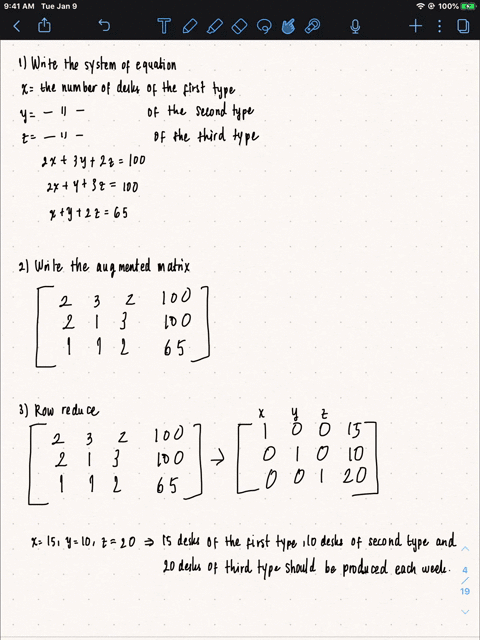 9:41 AM Tue Jan 9
100%
1) Write the system of equation
x= the number of desks of the first type
y= — " — of the second type
z= — " — of the third type
2x + 3y + 2z = 100
2x + y + 3z = 100
x + y + 2z = 65
2) Write the augmented matrix
2 3 2 100
2 1 3 100
1 1 2 65
3) Row reduce
x y z
2 3 2 100 1 0 0 15
2 1 3 100 → 0 1 0 10
1 1 2 65 0 0 1 20
x=15, y=10, z=20 ⇒ 15 desks of the first type, 10 desks of second type and
20 desks of third type should be produced each week.
4
/
19